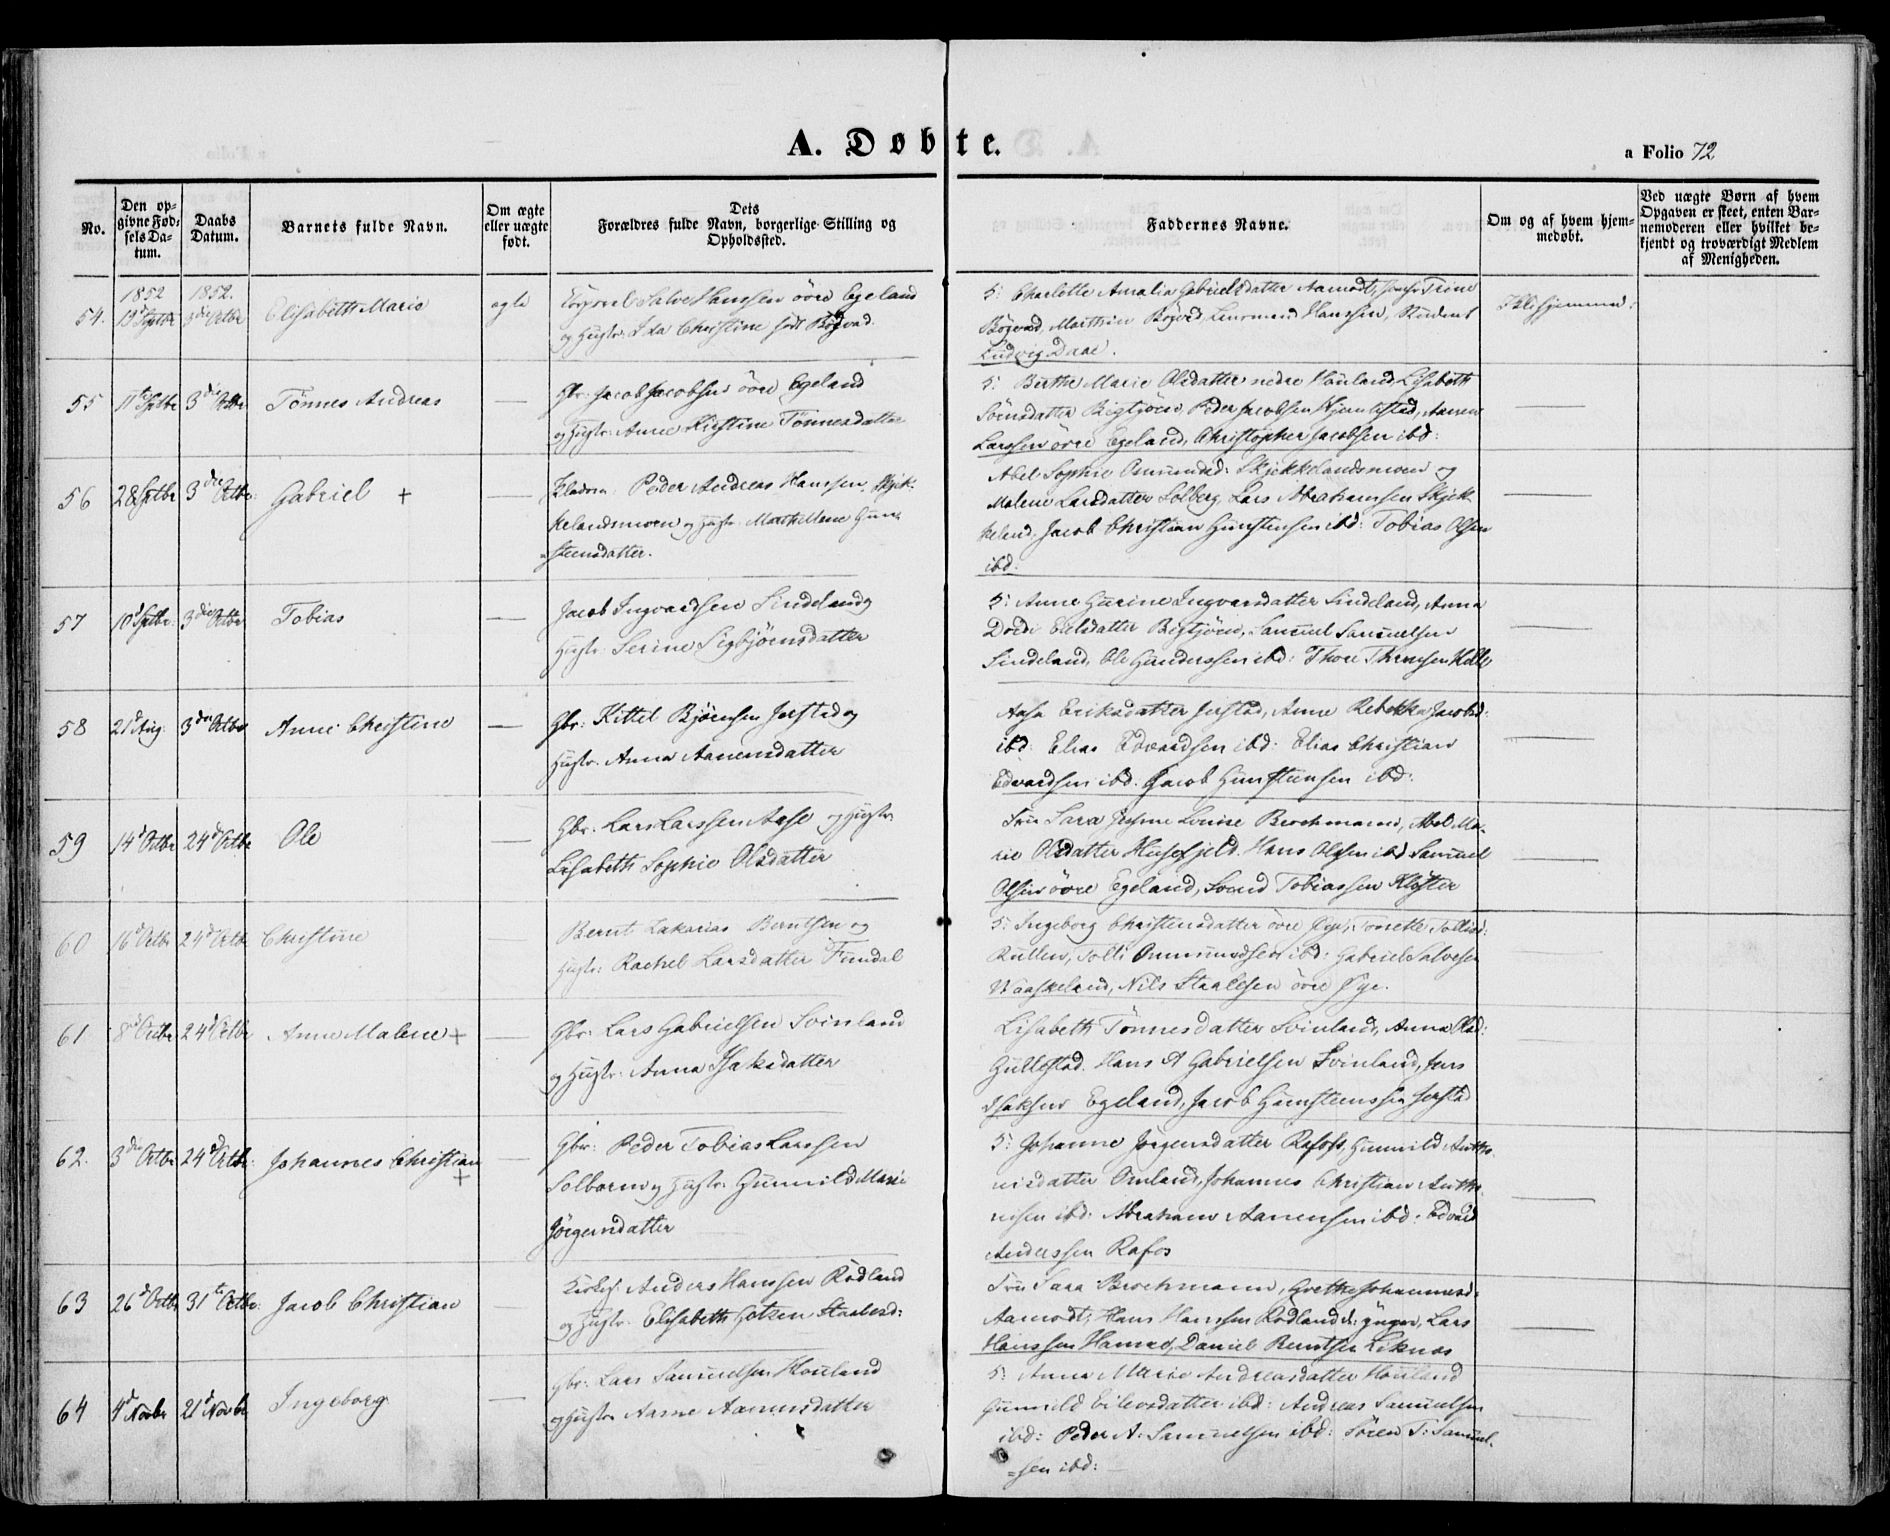 A. Døbte.
a Folio 72
No.
Den op-
givne Fød-
sels Da-
tum.
Daabs
Datum.
Barnets fulde Navn.
Om ægte
eller uægte
født.
Dets
Forældres fulde Navn, borgerlige Stilling og
Opholdssted.
Faddernes Navne.
Om og af hvem hjem-
medøbt.
Ved uægte Børn af hvem
Opgaven er skeet, enten Bar-
nemoderen eller hvilket be-
kjendt og troværdigt Medlem
af Menigheden.
1852 1852.
54. Septbr 3die Octbr Elisabeth Marie ægte Salve Hanssen övre Egeland
og Hustr: Christine født Bögvad.
5: Charlotte Amalia Gabrielsdatter Aamodt, Trine
Bögvad, Bögvad, Lensmand Hanssen, Student
Ludvig Daae.
55 11te Septbr 3die Octbr Tönnes Andreas — Gbr: Jacob Jacobsen övre Egeland
og Hustr: Anne Kirstine Tönnesdatter
5: Berthe Marie Olsdatter nedre Houland, Lisabeth
Sörensdatter Bigtjörn, Peder Jacobsen Aanen
Larssen övre Egeland, Christopher Jacobsen ibd: —
56 28 Sptbr 3die Octbr: Gabriel + — Peder Andreas Hanssen, Skjek-
kelandsmoen og Hustr: Marthe Malene Gun-
=steensdatter.
Abel Sophie Omundsd: Skjekkelandsmoen og
Malene Larsdatter Solberg, Lars Abrahamsen Skjek-
keland, Jacob Christian Gunstensen ibd: Tobias Olsen
ibd: —
57 10d Sptbr: 3die Octbr Tobias — Jacob Ingvardsen Sindeland og
Hustr: Serine Sigbjörnsdatter
5: Anne Gurine Ingvarsdatter Sindeland, Anna
Dorde Eilsdatter Bigtjörn, Samuel Samuelsen
Sindeland, Ole Gunderssen ibd: Thore —
58 21d Aug: 3die Octbr Anne Christine — Gbr: Kittel Bjørnsen Jerstad og
Hustr: Anna Aanensdatter
Aasa Eriksdatter Jerstad, Anne Rebekka Jacobsd:
ibd: Elias Edvardsen ibd: Elias Christian
Edvardsen ibd: Jacob Gunsteensen ibd: —
59 14d Octbr 24d Octbr Ole — Gbr: Lars Larssen Aase og Hustr:
Lisabeth Sophie Olsdatter
Sara Louise Brochmann, Abel Ma-
rie Olsdatter Husefjeld, Hans Olssen ibd Samuel
Olsen övre Egeland, Svend Tobiassen Kloster —
60 16d Octbr 24d Octbr Christine — Bernt Zakarias Berntsen og
Hustr: Rachel Larsdatter Fundal
5: Ingeborg Christensdatter övre Tonette Tollisd:
Rullen, Tolli Ommundsen ibd: Gabriel Salvesen
Vaaskeland, Nils Staalesen övre
61 8d Octbr 24d Octbr Anne Malene + — Gbr: Lars Gabrielsen Svinland
og Hustr: Anna Isaksdatter
Lisabeth Tönnesdatter Svinland, Anna Olsd:
Gullestad, Hans A Gabrielsen Svinland, Jens
Isaksen Egeland, Jacob Gunsteenssen Jerstad
62. 3die Octbr 24d Octbr: Johannes Christian + — Gbr: Peder Tobias Larssen
og Hustr: Gunnild Marie
Jörgensdatter
5: Johanne Jörgensdatter Rafoss, Gunnild Antho-
nisdatter Omland, Johannes Christian Antho-
nisen ibd: Abraham Aanensen ibd: Edvard
Anderssen Rafos —
63 26d Octbr 31te Octbr: Jacob Christian — Anders Hanssen Rödland
og Hustr: Elisabeth Staalesd:
Sara Brochmann, Grethe Johannesd:
Aamodt, Hans Hanssen Rödland d: yngre, Lars
Hanssen Daniel Berntsen Liknæs —
64 4d Novbr 21d Novbr Ingeborg — Gbr: Lars Samuelsen Houland
og Hustr: Aanensdatter
5: Anna Marie Andreasdatter Houland
Gunnild Eilevsdatter ibd: Andreas Samuelsen
ibd: Peder A: Samuelsen ibd: Sören T: Samuel-
=sen ibd: —